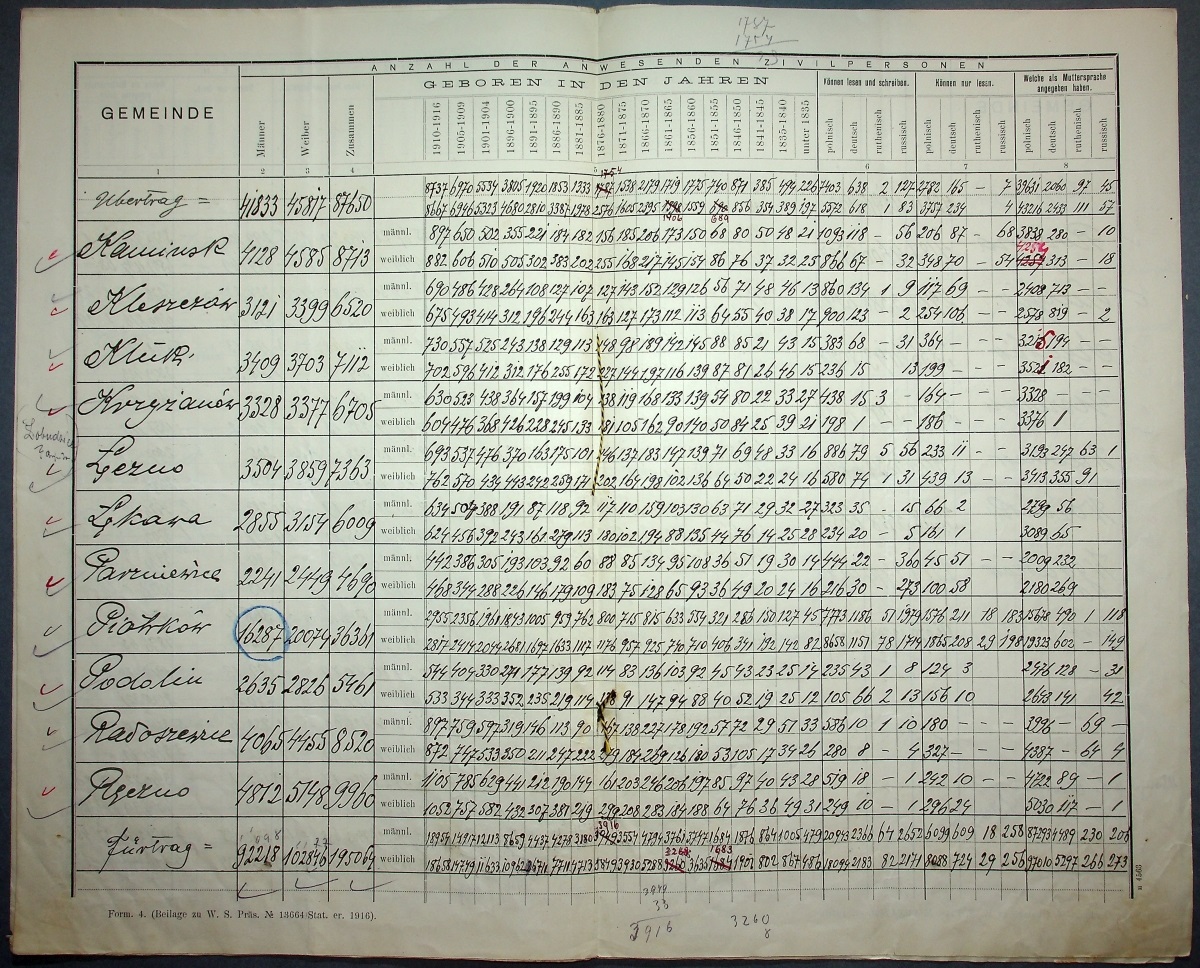 1787
1754
ANZAHL DER ANWESENDEN ZIVILPERSONEN
GEMEINDE Männer Weiber Zusammen GEBOREN IN DEN JAHREN Können lesen und schreiben. Können nur lesen. Welche als Muttersprache angegeben haben.
1910-1916 1905-1909 1901-1904 1896-1900 1891-1895 1886-1890 1881-1885 1876-1880 1871-1875 1866-1870 1861-1865 1856-1860 1851-1855 1846-1850 1841-1845 1835-1840 unter 1835 polnisch deutsch ruthenisch russisch polnisch deutsch ruthenisch russisch polnisch deutsch ruthenisch russisch
1 2 3 4 5 6 7 8
1754
Übertrag = 41833 45817 87650
8737 6970 5534 3805 1920 1853 1333 1787 1538 2179 1719 1775 740 871 385 494 226 7403 638 2 127 2782 165 - 7 39631 2060 97 45
8667 6946 5323 4680 2810 3387 1978 2576 1605 2395 1559 856 354 389 197 5572 618 1 83 3757 234 - 4 43216 2433 111 57
1906 689
Kaminsk 4128 4585 8713
männl. 897 650 502 355 221 184 182 156 185 206 173 150 68 80 50 48 21 1093 118 - 56 206 87 - 68 3838 280 - 10
4254
weiblich 882 606 510 505 302 383 202 255 168 217 145 154 86 76 37 32 25 866 67 - 32 348 70 - 54 4257 313 - 18
Kleszczów 3121 3399 6520
männl. 690 486 428 264 108 127 107 127 143 152 129 126 56 71 48 46 13 860 134 1 9 117 69 - - 2408 713 - -
weiblich 675 493 414 312 196 244 163 163 127 173 112 113 64 55 40 38 17 900 123 - 2 254 106 - - 2578 819 - 2
Kluk 3409 3703 7112
männl. 730 557 525 243 138 129 113 148 98 189 142 145 88 85 21 43 15 383 68 - 31 364 - - - 3215 194 - -
weiblich 702 596 412 312 176 255 172 227 144 197 116 139 87 81 26 46 15 236 15 13 199 - - - 3521 182 - -
Krzyżanów 3328 3377 6705
männl. 630 523 438 364 157 199 104 138 119 168 133 139 54 80 22 33 27 438 15 3 - 164 - - - 3328 - - -
weiblich 604 476 368 426 228 245 133 181 105 162 90 140 50 84 25 39 21 198 1 - - 186 - - - 3376 1
Łęzno 3504 3859 7363
männl. 693 537 476 370 163 175 101 146 137 183 147 139 71 69 48 33 16 886 79 5 56 233 11 - - 3193 247 63 1
weiblich 762 570 434 443 242 259 171 202 164 198 102 136 64 50 22 24 16 580 74 1 31 439 13 - - 3413 355 91
Łękawa 2855 3154 6009
männl. 634 504 388 191 87 118 92 117 110 159 103 130 63 71 29 32 27 323 35 - 15 66 2 2799 56
weiblich 624 456 392 243 161 279 113 180 102 194 88 135 44 76 14 25 28 234 20 - 5 161 1 3089 65
Parzniewice 2241 2449 4690
männl. 442 386 305 193 103 92 60 88 85 134 95 108 36 51 19 30 14 444 22 - 360 45 51 - - 2009 232
weiblich 468 344 288 226 146 179 109 183 75 128 65 93 36 49 20 24 16 216 30 - 273 100 58 2180 269
Piotrków 16287 20074 36361
männl. 2955 2356 1961 1843 1005 959 762 800 715 815 633 554 321 286 150 127 45 7773 1186 51 1979 1576 211 18 183 15678 490 1 118
weiblich 2817 2414 2044 2681 1692 1633 1117 1176 957 925 770 710 406 341 192 142 82 8658 1151 78 1714 1865 208 29 198 19323 602 - 149
Podolin 2635 2826 5461
männl. 544 404 330 271 177 139 92 114 83 136 103 92 45 43 23 25 14 235 43 1 8 124 3 2476 128 - 31
weiblich 533 344 333 352 235 219 114 138 91 147 94 88 40 52 19 25 12 105 66 2 13 156 10 2643 141 42
Radoszewice 4065 4455 8520
männl. 897 759 597 319 146 113 90 167 138 227 178 192 57 72 29 51 33 586 10 1 10 180 - - - 3996 - 69 -
weiblich 872 747 533 350 211 247 222 279 184 269 126 180 53 105 17 34 26 280 8 - 4 327 - - - 4387 - 64 4
Ręczno 4812 5148 9960
männl. 1105 785 629 441 212 190 144 161 203 246 206 197 85 97 40 43 28 519 18 - 1 242 10 - - 4722 89 - 1
weiblich 1052 757 582 432 307 381 219 299 208 283 184 188 64 76 36 49 31 249 10 - 1 296 24 5030 117 - 1
3916
Fürtrag = 92218 102846 195064
männl. 18954 14917 12113 8659 4437 4278 3180 3949 3554 4794 3761 3747 1684 1876 864 1005 479 20943 2366 64 2652 6099 609 18 258 87293 4489 230 206
3268 1683
weiblich 18658 14749 11633 10962 6711 7711 4713 5849 3930 5288 3260 3635 1684 1901 802 867 486 18094 2183 82 2171 8088 724 29 256 97010 5297 266 273
3949
33
3916
3260
8
Form. 4. (Beilage zu W. S. Präs. № 13664/Stat. er. 1916).